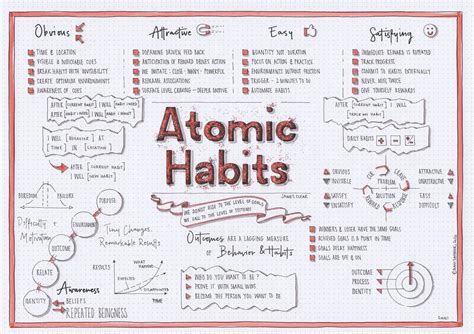 Obvious
TIME & LOCATION
VISIBLE & NOTICEABLE CUES
BREAK HABITS WITH INVISIBILITY
CREATE OPTIMUM ENVIRONMENTS
AWARENESS OF CUES
Attractive
DOPAMINE DRIVEN FEED BACK
ANTICIPATION OF REWARD DRIVES ACTION
WE IMITATE: CLOSE - MANY - POWERFUL
REFRAME ASSOCIATIONS
SURFACE LEVEL CRAVING - DEEPER MOTIVE
Easy
QUANTITY NOT DURATION
FOCUS ON ACTION & PRACTICE
ENVIRONMENTS WITHOUT FRICTION
TRIGGER - 2 MINUTES TO DO
AUTOMATE HABITS
Satisfying
IMMEDIATE REWARD IS REPEATED
TRACK PROGRESS
COMBAT TO HABITS EXTERNALLY
NEVER MISS TWICE
GIVE YOURSELF REWARDS
AFTER [CURRENT HABIT]
I WILL [NEW HABIT]
AFTER [HABIT I NEED]
I WILL [HABIT I WANT]
I WILL [BEHAVIOR] AT
[TIME] IN [LOCATION]
AFTER [CURRENT HABIT]
I WILL [NEW HABIT]
AFTER [CURRENT HABIT]
DAILY HABITS
Atomic
Habits
JAMES CLEAR
WE DO NOT RISE TO THE LEVEL OF GOALS
WE FALL TO THE LEVEL OF SYSTEMS
OBVIOUS
INVISIBLE
EASY
DIFFICULT
CUE
CRAVE
RESPONSE
REWARD
PROBLEM
SOLUTION
ATTRACTIVE
UNATTRACTIVE
SATISFYING
UNSATISFYING
BOREDOM
FAILURE
Difficulty +
Motivation
PURPOSE
ENVIRONMENT
OUTCOME
RELATE
IDENTITY
Awareness
BELIEFS
REPEATED BEINGNESS
Tiny Changes,
Remarkable Results
Outcomes ARE A LAGGING MEASURE
OF Behavior & Habits
WHO DO YOU WANT TO BE?
PROVE IT WITH SMALL WINS
BECOME THE PERSON YOU WANT TO BE
WINNERS & LOSERS HAVE THE SAME GOALS
ACHIEVED GOALS IS A POINT IN TIME
GOALS DELAY HAPPINESS
GOALS ARE OFF & ON
OUTCOME
PROCESS
IDENTITY